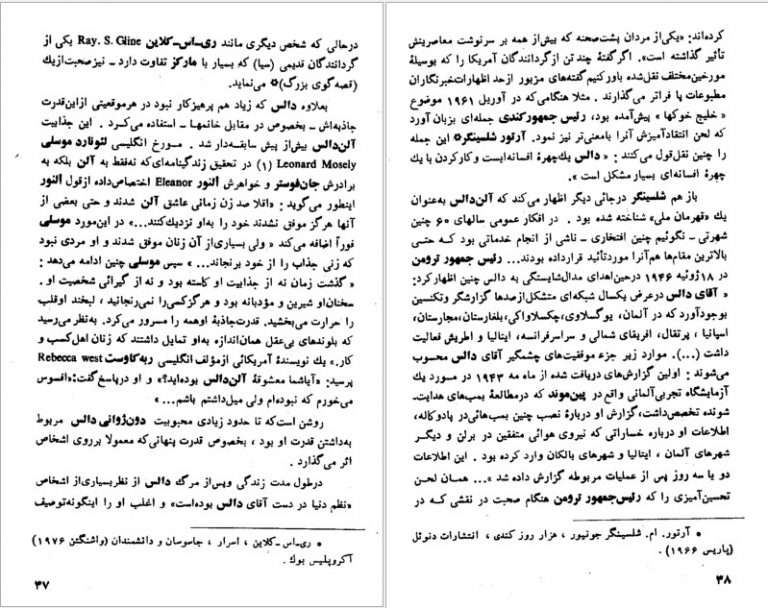 درحالی که شخص دیگری مانند ری‌ـ‌اس‌ـ‌کلاین Ray. S. Cline یکی از
گردانندگان قدیمی (سیا) که بسیار با مارکز تفاوت دارد ـ نیزصحبت‌ازیك
(قصه‌گوی بزرگ)* می‌نماید.
بعلاوه دالس که زیاد هم پرهیزکار نبود در هرموقعیتی ازاین‌قدرت
جاذبه‌اش ـ بخصوص در مقابل خانمها ـ استفاده می‌کرد . این جذابیت
آلن‌دالس بیش‌از پیش سابقه‌دار شد . مورخ انگلیسی لئونارد موسلی
Leonard Mosely (۱) در تحقیق زندگینامه‌ای‌که نه‌فقط به آلن بلکه به
برادرش جان‌فوستر و خواهرش النور Eleanor اختصاص‌داده ازقول النور
اینطور می‌گوید : «اقلا صد زن زمانی عاشق آلن شدند و حتی بعضی از
آنها هرگز موفق نشدند خود را به‌او نزدیك‌کنند...» در این‌مورد موسلی
فوراً اضافه می‌کند « ولی بسیاری‌از آن زنان موفق شدند و او مردی نبود
که زنی جذاب را از خود برنجاند...» سپس موسلی چنین ادامه می‌دهد :
«گذشت زمان نه از جذابیت او کاسته بود و نه از گیرائی شخصیت او .
سخنان‌او شیرین و مؤدبانه بود و هرگزکسی‌را نمی‌رنجانید ، لبخند اوقلب
را حرارت می‌بخشید. قدرت‌جاذبهٔ اوهمه را مسرور می‌کرد. به‌نظر می‌رسید
که بلوندهای بی‌عقل همان‌اندازه به‌او تمایل داشتند که زنان اهل‌کسب و
کار.» یك نویسندهٔ آمریکائی ازمؤلف انگلیسی ربه‌کاوست Rebecca west
پرسید: «آیاشما معشوقهٔ آلن‌دالس بوده‌اید؟» و او درپاسخ‌گفت:«افسوس
می‌خورم که نبوده‌ام ولی میل‌داشتم باشم...»
روشن است‌که تا حدود زیادی محبوبیت دون‌ژوانی دالس مربوط
به‌داشتن قدرت او بود ، بخصوص قدرت پنهانی‌که معمولا برروی اشخاص
اثر می‌گذارد .
درطول مدت زندگی وپس‌از مرگ دالس از نظربسیاری‌از اشخاص
«نظم دنیا در دست آقای دالس بوده‌است» و اغلب او را اینگونه‌توصیف
* ری‌ـ‌اس‌ـ‌کلاین ، اسرار ، جاسوسان و دانشمندان (واشنگتن ۱۹۷۶)
آکروپلیس بوك .
۳۷
کرده‌اند: «یکی‌از مردان پشت‌صحنه که بیش‌از همه بر سرنوشت معاصرینش
تأثیر گذاشته است». اگرگفتهٔ چند تن ازگردانندگان آمریکا را که بوسیلهٔ
مورخین‌مختلف نقل‌شده باورکنیم گفته‌های مزبور ازحد اظهارات‌خبرنگاران
مطبوعات پا فراتر می‌گذارند . مثلا هنگامی‌که در آوریل ۱۹۶۱ موضوع
« خلیج خوکها » پیش‌آمده بود، رئیس جمهورکندی جمله‌ای بزبان آورد
که لحن انتقادآمیزش آنرا بامعنی‌تر نیز نمود. آرتور شلسینگر* این جمله
را چنین نقل‌قول می‌کند : « دالس یك‌چهرهٔ افسانه‌ایست وکارکردن با یك
چهرهٔ افسانه‌ای بسیار مشکل است »
باز هم شلسینگر درجائی دیگر اظهار می‌کند که آلن‌دالس به‌عنوان
یك «قهرمان ملی» شناخته شده بود . در افکار عمومی سالهای ۶۰ چنین
شهرتی ـ نگوئیم چنین افتخاری ـ ناشی از انجام خدماتی بود که حتی
بالاترین مقام‌ها هم‌آنرا موردتأئید قرارداده بودند... رئیس جمهور ترومن
در ۱۸ ژوئیه ۱۹۴۶ درحین‌اهدای مدال‌شایستگی به دالس چنین اظهارکرد:
« آقای دالس درعرض یکسال شبکه‌ای متشکل‌ازصدها گزارشگر وتکنسین
بوجودآورد که در آلمان، یوگسلاوی،چکسلاواکی،بلغارستان،مجارستان،
اسپانیا ، پرتقال، آفریقای شمالی و سراسرفرانسه، ایتالیا و اطریش فعالیت
داشت (...). موارد زیر جزء موفقیت‌های چشمگیر آقای دالس محسوب
می‌شوند : اولین گزارش‌های دریافت شده از ماه مه ۱۹۴۳ در مورد یك
آزمایشگاه تجربی‌آلمانی واقع در پین‌موند که درمطالعهٔ بمب‌های هدایت‌
شونده تخصص‌داشت،گزارش او دربارهٔ نصب چنین بمب‌هائی‌در پادوکاله،
اطلاعات او درباره خساراتی که نیروی هوائی متفقین در برلن و دیگر
شهرهای آلمان ، ایتالیا و شهرهای بالکان وارد کرده بود . این اطلاعات
دو یا سه روز پس از عملیات مربوطه گزارش داده شد »... همان لحن
تحسین‌آمیزی را که رئیس‌جمهور ترومن هنگام صحبت در نقشی که در
* آرتور. ام. شلسینگر جونیور ، هزار روز کندی ، انتشارات دنوئل
(پاریس ۱۹۶۶) .
۳۸